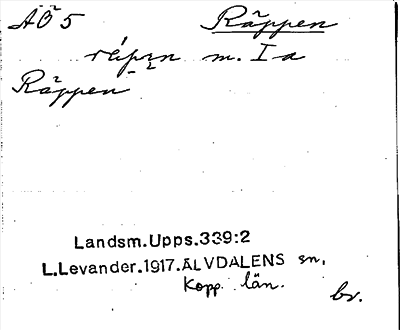 AÖ 5 Räppen
råpın m. I a
Räppen
Landsm.Upps.339:2
L.Levander.1917.ÄLVDALENS sn.
Kopp. län.
br.